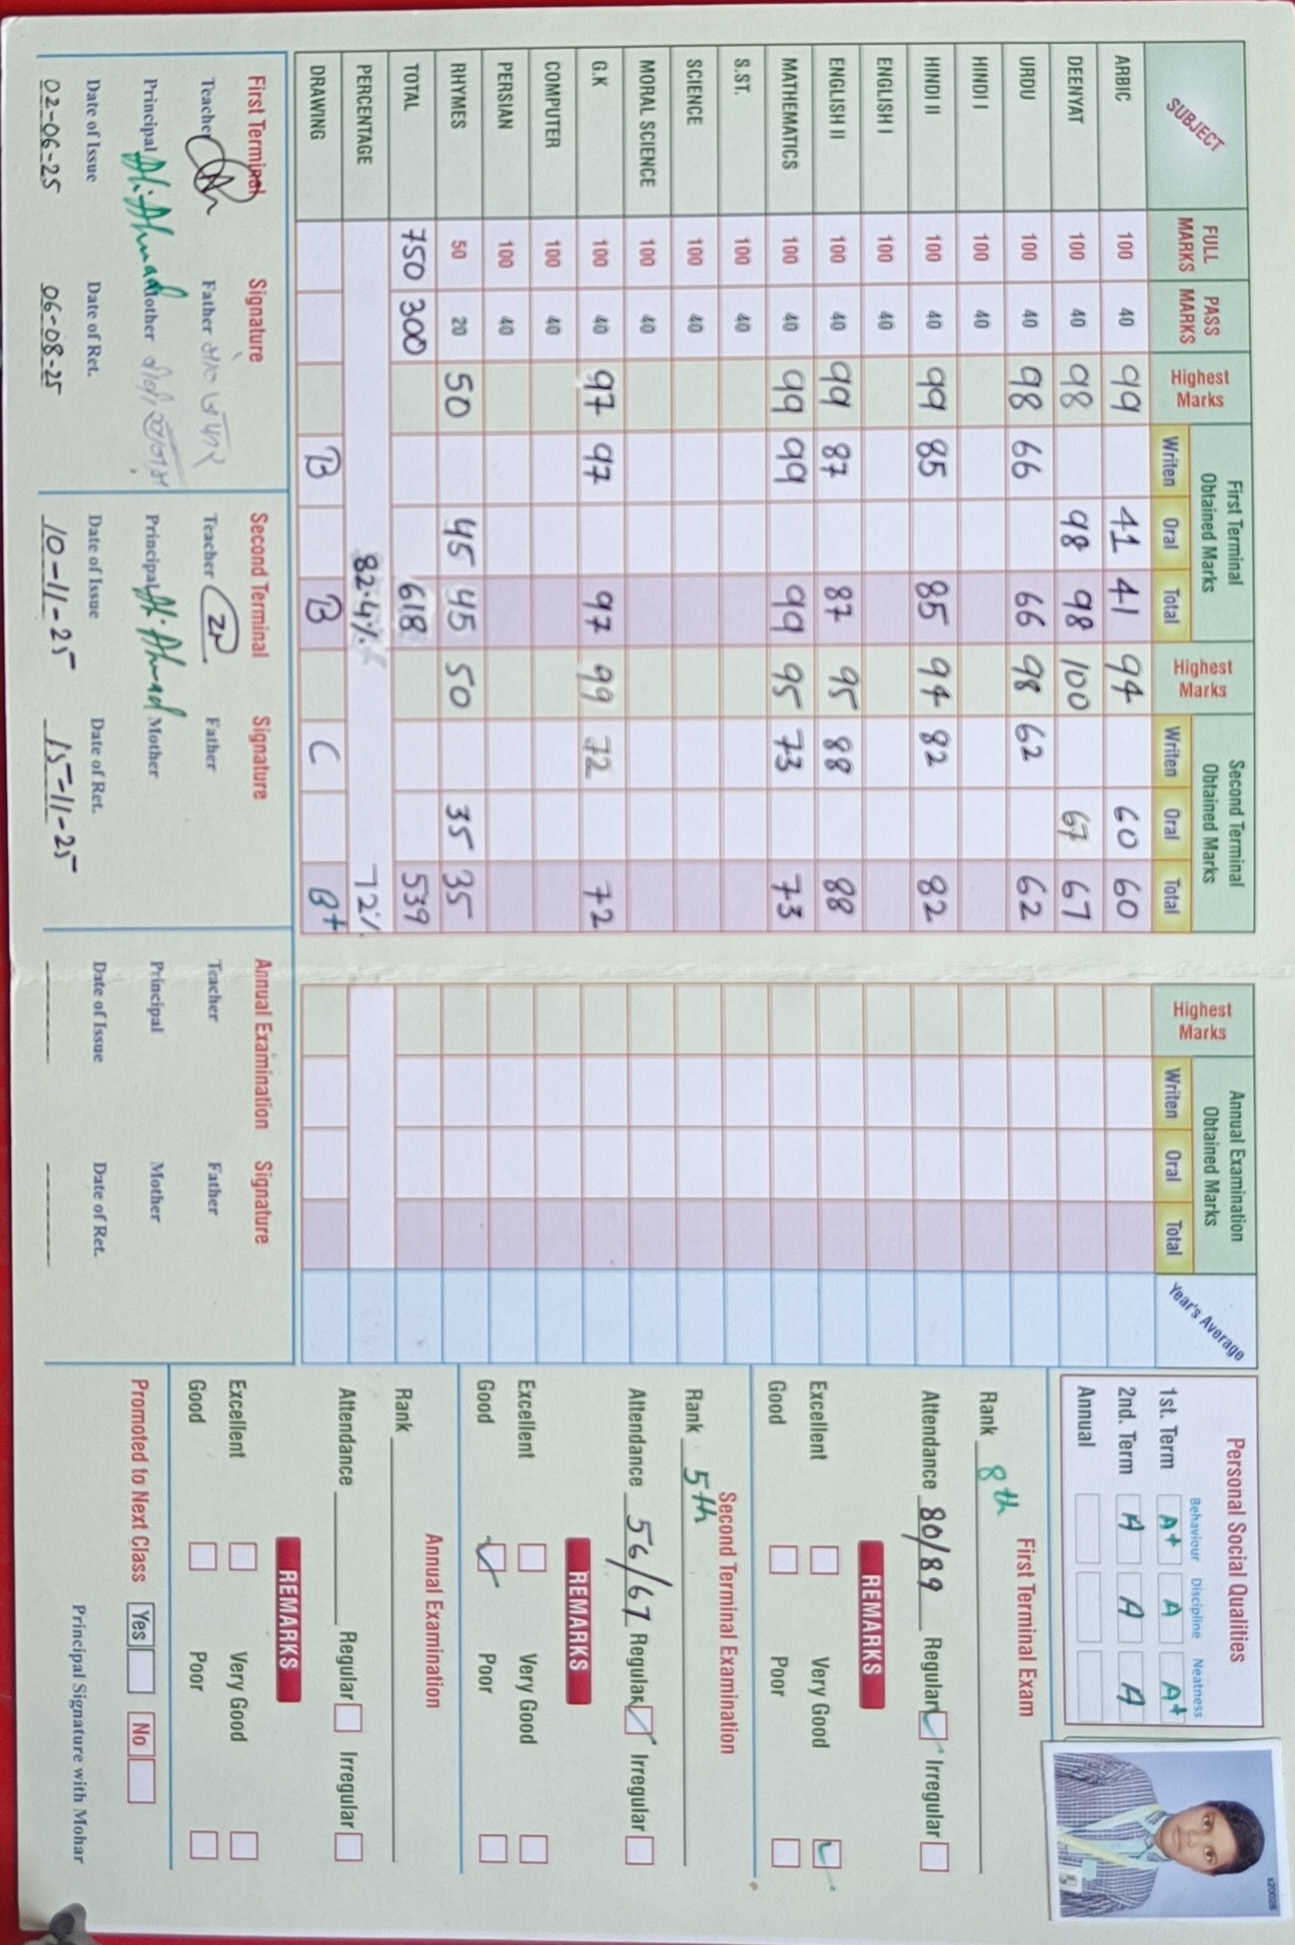 SUBJECT FULL MARKS PASS MARKS Highest Marks First Terminal Obtained Marks Writen Oral Total Highest Marks Second Terminal Obtained Marks Writen Oral Total Highest Marks Annual Examination Obtained Marks Writen Oral Total Year's Average
ARBIC 100 40 99 41 41 94 60 60
DEENYAT 100 40 98 98 98 100 67 67
URDU 100 40 98 66 66 98 62 62
HINDI I 100 40
HINDI II 100 40 99 85 85 94 82 82
ENGLISH I 100 40
ENGLISH II 100 40 99 87 87 95 88 88
MATHEMATICS 100 40 99 99 99 95 73 73
S.ST. 100 40
SCIENCE 100 40
MORAL SCIENCE 100 40
G.K 100 40 97 97 97 99 72 72
COMPUTER 100 40
PERSIAN 100 40
RHYMES 50 20 50 45 45 50 35 35
TOTAL 750 300 618 539
PERCENTAGE 82.4% 72%
DRAWING B B C B+
First Terminal Signature
Teacher Father
Principal Ali Ahmad Mother
Date of Issue Date of Ret.
02-06-25 06-08-25
Second Terminal Signature
Teacher Father
Principal Ali Ahmad Mother
Date of Issue Date of Ret.
10-11-25 15-11-25
Annual Examination Signature
Teacher Father
Principal Mother
Date of Issue Date of Ret.
Personal Social Qualities
Behaviour Discipline Neatness
1st. Term A+ A A+
2nd. Term A A A
Annual
s20028
First Terminal Exam
Rank 8th
Attendance 80/89 Regular Irregular
REMARKS
Excellent Very Good
Good Poor
Second Terminal Examination
Rank 5th
Attendance 56/67 Regular Irregular
REMARKS
Excellent Very Good
Good Poor
Annual Examination
Rank
Attendance Regular Irregular
REMARKS
Excellent Very Good
Good Poor
Promoted to Next Class Yes No
Principal Signature with Mohar